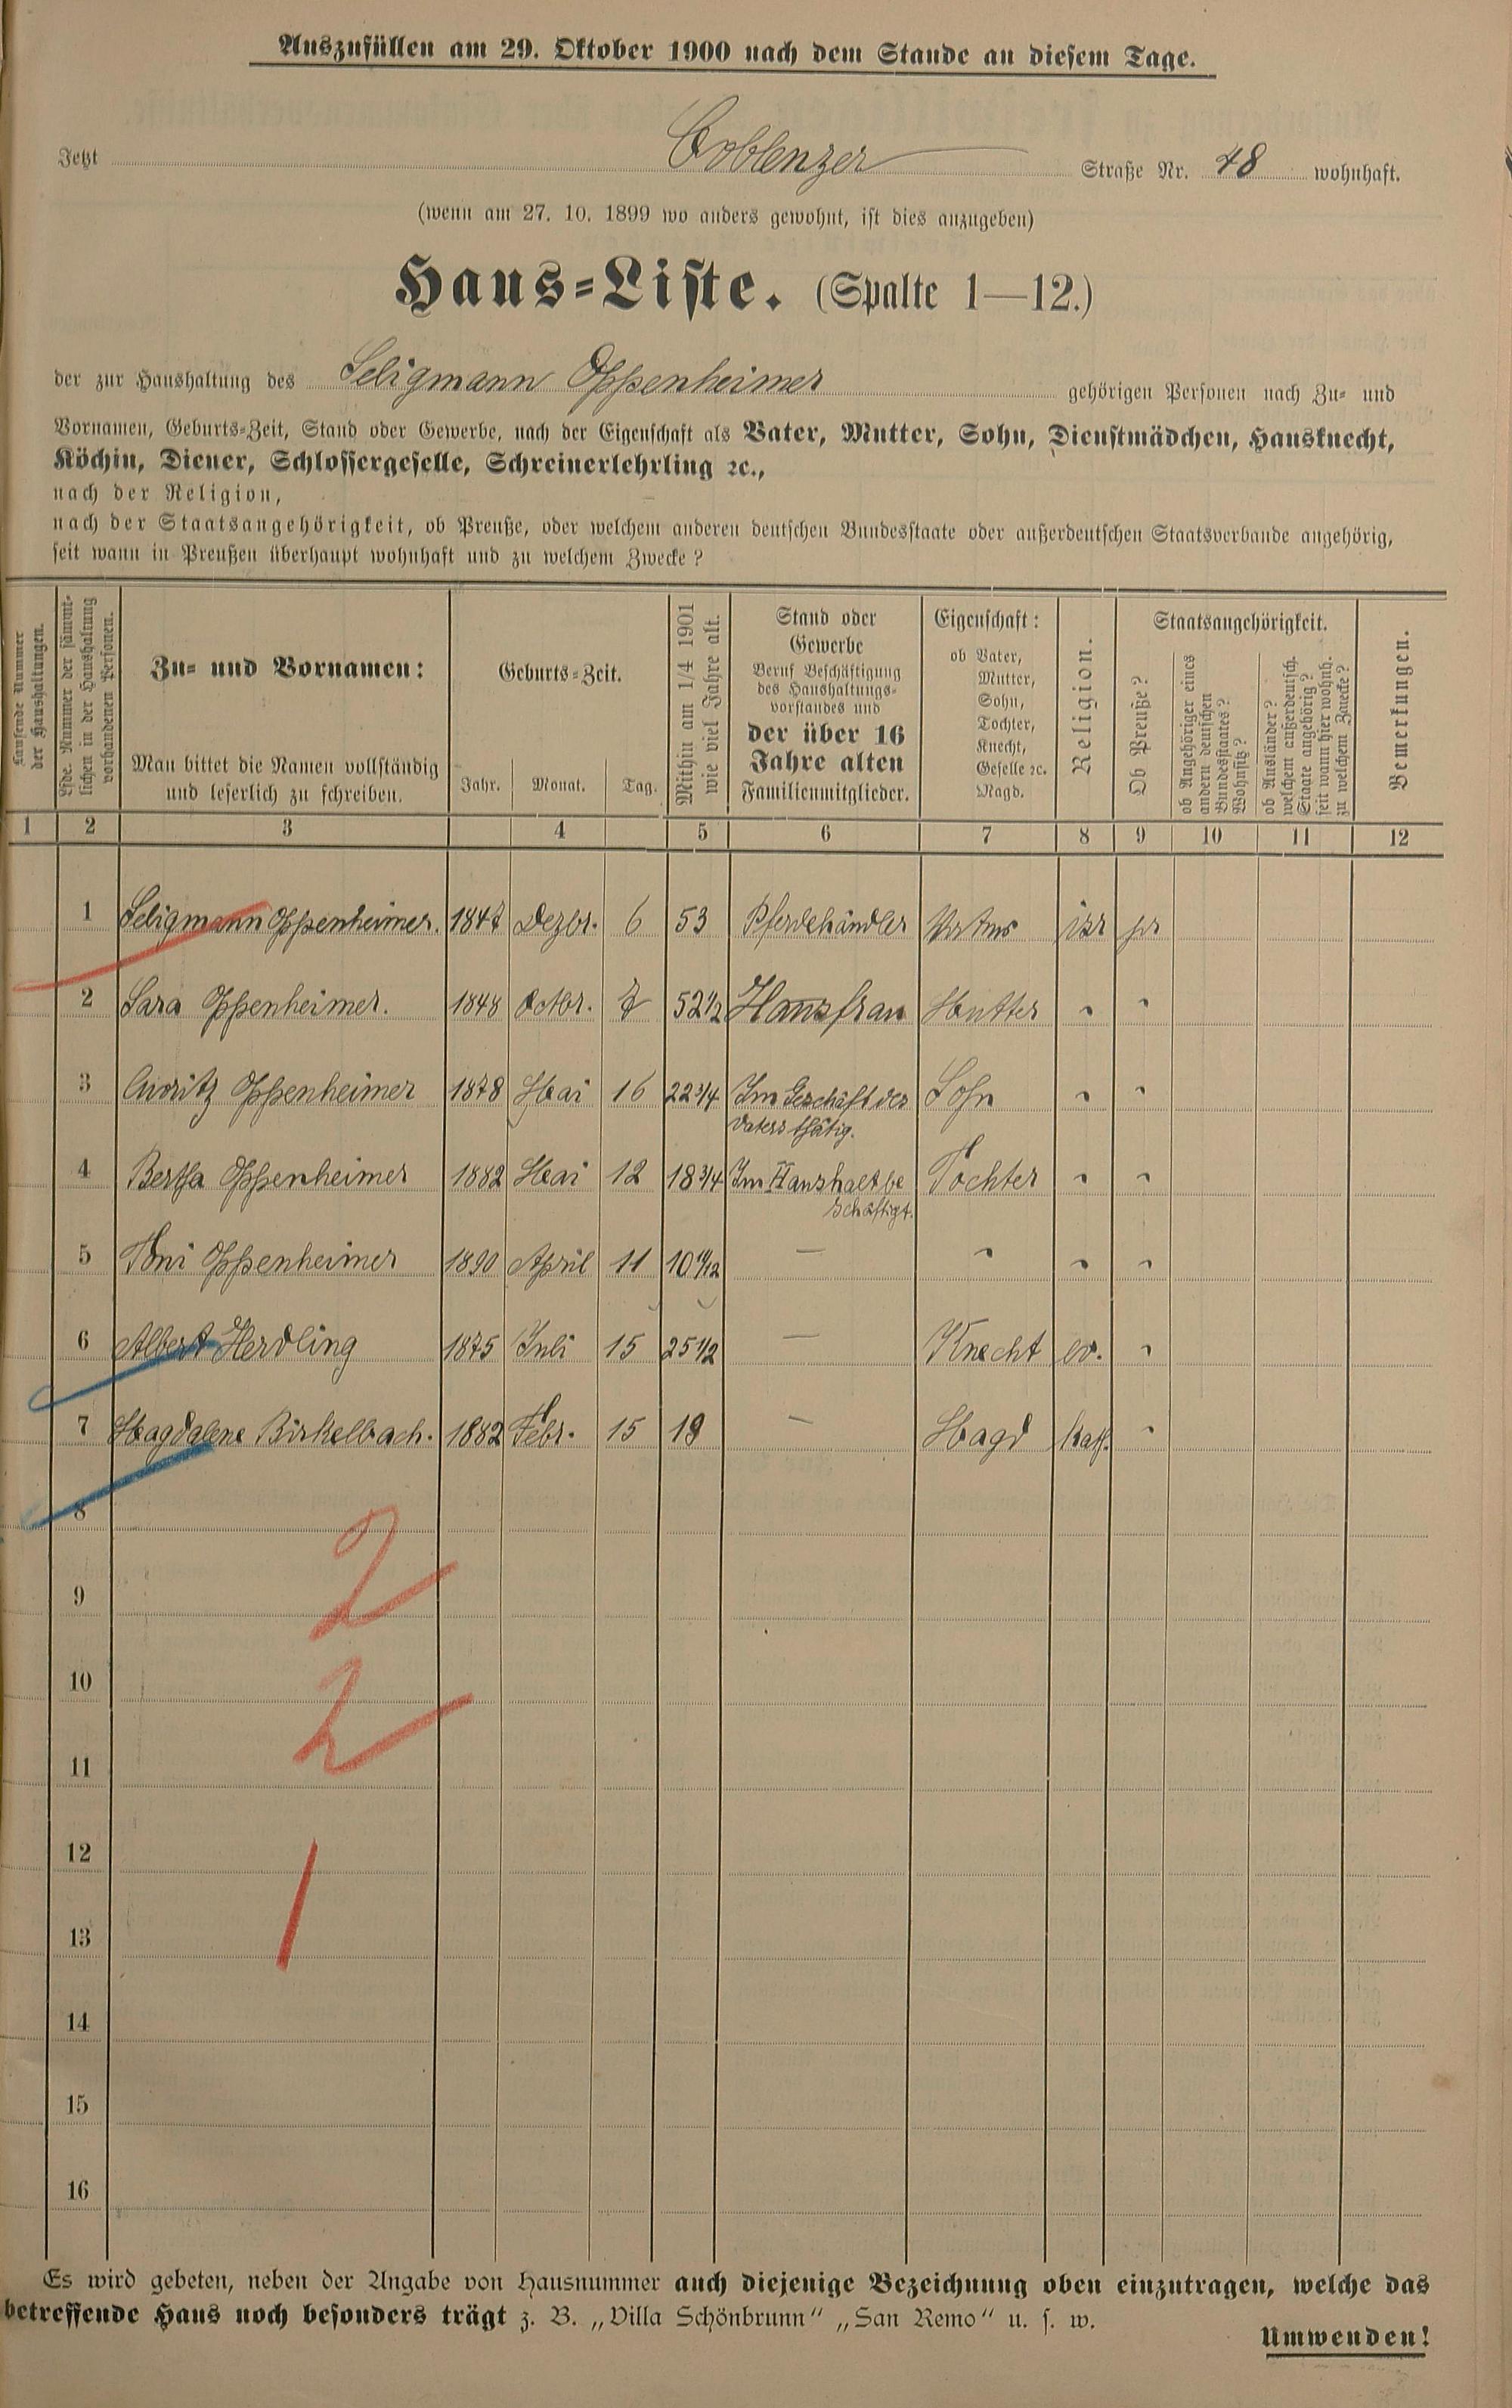 Auszufüllen am 29. Oktober 1900 nach dem Stande an diesem Tage.
Jetzt Coblenzer Straße Nr. 48 wohnhaft.
(wenn am 27. 10. 1899 wo anders gewohnt, ist dies anzugeben)
Haus-Liste. (Spalte 1—12.)
der zur Haushaltung des Seligmann Oppenheimer gehörigen Personen nach Zu- und
Vornamen, Geburts-Zeit, Stand oder Gewerbe, nach der Eigenschaft als Vater, Mutter, Sohn, Dienstmädchen, Hausknecht,
Köchin, Diener, Schlossergeselle, Schreinerlehrling ꝛc.,
nach der Religion,
nach der Staatsangehörigkeit, ob Preuße, oder welchem anderen deutschen Bundesstaate oder außerdeutschen Staatsverbande angehörig,
seit wann in Preußen überhaupt wohnhaft und zu welchem Zwecke?
Laufende Nummer
der Haushaltungen.
Lfde. Nummer der sämmt-
lichen in der Haushaltung
vorhandenen Personen.
Zu- und Vornamen:
Man bittet die Namen vollständig
und leserlich zu schreiben.
Geburts-Zeit.
Jahr. Monat. Tag.
Mithin am 1/4 1901
wie viel Jahre alt.
Stand oder
Gewerbe
Beruf Beschäftigung
des Haushaltungs-
vorstandes und
der über 16
Jahre alten
Familienmitglieder.
Eigenschaft:
ob Vater,
Mutter,
Sohn,
Tochter,
Knecht,
Geselle ꝛc.
Magd.
Religion.
Staatsangehörigkeit.
Ob Preuße?
ob Angehöriger eines
andern deutschen
Bundesstaates?
Wohnsitz?
ob Ausländer?
welchem außerdeutsch.
Staate angehörig?
seit wann hier wohnh.
zu welchem Zwecke?
Bemerkungen.
1 2 3 4 5 6 7 8 9 10 11 12
1 Seligmann Oppenheimer. 1847 Dezbr. 6 53 Pferdehändler isr pr
2 Sara Oppenheimer. 1848 Octbr. 7 52 1/2 Hausfrau Mutter " "
3 Moritz Oppenheimer 1878 Mai 16 22 3/4 Im Geschäft des Sohn " "
Vaters thätig.
4 Bertha Oppenheimer 1882 Mai 12 18 3/4 Im Haushalt be Tochter " "
schäftigt.
5 Toni Oppenheimer 1890 April 11 10 11/12 — " " "
6 Albert Herdling 1875 Juli 15 25 1/2 — Knecht ev. "
7 Magdalene Birkelbach. 1882 Febr. 15 19 — Magd kath. "
8
2
9
10
2
11
12
1
13
14
15
16
Es wird gebeten, neben der Angabe von Hausnummer auch diejenige Bezeichnung oben einzutragen, welche das
betreffende Haus noch besonders trägt z. B. „Villa Schönbrunn" „San Remo" u. s. w.
Umwenden!